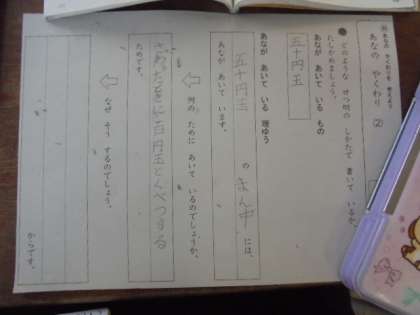 あなの やくわり ②
どのような せつ明の しかたで 書いて いるか、
たしかめましょう。
あなが あいて いる もの
五十円玉
あなが あいて いる 理ゆう
五十円玉 の まん中 には、
あなが あいて います。
何の ために あいて いるのでしょうか。
さわったときに百円玉とくべつする
ためです。
なぜ そう するのでしょう。
からです。